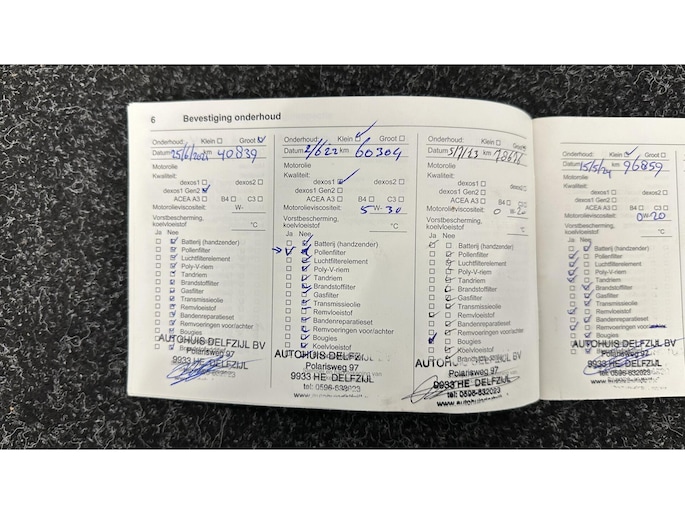 6 Bevestiging onderhoud
Onderhoud: Klein Groot
Datum 25/6/2021 40839
Motorolie
Kwaliteit:
dexos1 dexos2
dexos1 Gen2
ACEA A3 B4 C3
Motorolieviscositeit: W-
Vorstbescherming,
koelvloeistof °C
Ja Nee
Batterij (handzender)
Pollenfilter
Luchtfilterelement
Poly-V-riem
Tandriem
Brandstoffilter
Gasfilter
Transmissieolie
Remvloeistof
Bandenreparatieset
Remvoeringen voor/achter
Bougies
AUTOHUIS DELFZIJL BV
Polarisweg 97
9933 HE DELFZIJL
Onderhoud: Klein Groot
Datum 2/6 22 km 60304
Motorolie
Kwaliteit:
dexos1 dexos2
dexos1 Gen2
ACEA A3 B4 C3
Motorolieviscositeit: 5 W- 30
Vorstbescherming,
koelvloeistof °C
Ja Nee
Batterij (handzender)
Pollenfilter
Luchtfilterelement
Poly-V-riem
Tandriem
Brandstoffilter
Gasfilter
Transmissieolie
Remvloeistof
Bandenreparatieset
Remvoeringen voor/achter
Bougies
Koelvloeistof
AUTOHUIS DELFZIJL
Polarisweg 97
9933 HE DELFZIJL
tel: 0596-632023
Onderhoud: Klein Groot
Datum 5/7/23 km
Motorolie
Kwaliteit:
dexos1 dexos2
dexos1 Gen2
ACEA A3 B4 C3
Motorolieviscositeit: 0 W-20
Vorstbescherming,
koelvloeistof °C
Ja Nee
Batterij (handzender)
Pollenfilter
Luchtfilterelement
Poly-V-riem
Tandriem
Brandstoffilter
Gasfilter
Transmissieolie
Remvloeistof
Bandenreparatieset
Remvoeringen voor/achter
Bougies
Remvloeistof
AUTOHUIS DELFZIJL BV
Polarisweg 97
9933 HE DELFZIJL
tel: 0596-632023
Onderhoud: Klein Groot
Datum 15/5/24 km 96859
Motorolie
Kwaliteit:
dexos1 dexos2
dexos1 Gen2
ACEA A3 B4 C3
Motorolieviscositeit:
0W-20
Vorstbescherming,
koelvloeistof °C
Ja Nee
Batterij (handzender)
Pollenfilter
Luchtfilterelement
Poly-V-riem
Tandriem
Brandstoffilter
Gasfilter
Transmissieolie
Remvloeistof
Bandenreparatieset
Remvoeringen voor/
Bougies
AUTOHUIS DELFZIJL BV
Polarisweg 97
9933 HE DELFZIJL
tel: 0596-632023